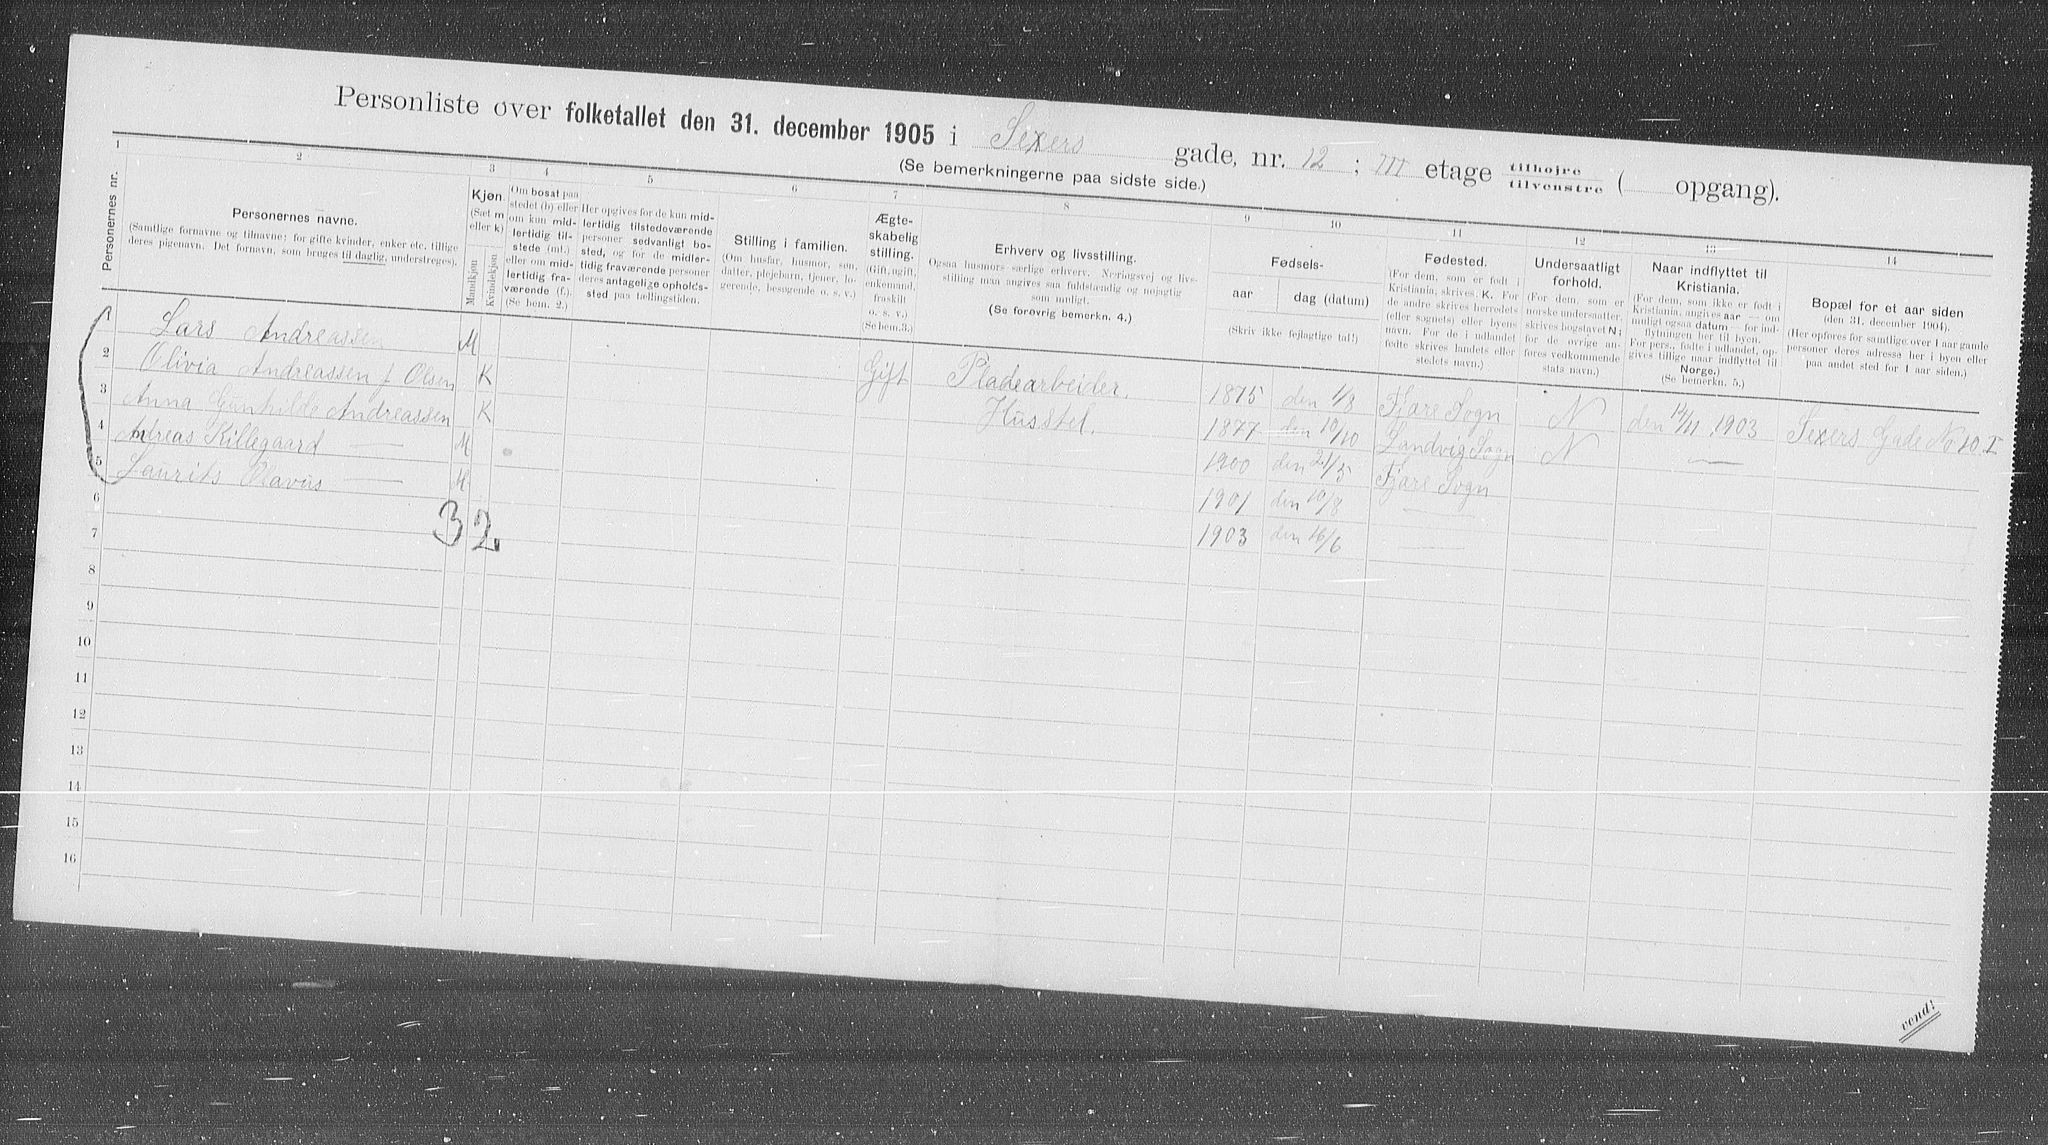 Personliste over folketallet den 31. december 1905 i Sexers gade, nr. 12 ; III etage tilhøjre tilvenstre ( opgang).
(Se bemerkningerne paa sidste side.)
1 2 3 4 5 6 7 8 9 10 11 12 13 14
Personernes nr.
Personernes navne.
(Samtlige fornavne og tilnavne; for gifte kvinder, enker etc. tillige
deres pigenavn. Det fornavn, som bruges til daglig, understreges).
Kjøn.
(Sæt m
eller k)
Mandkjøn
Kvindekjøn
Om bosat paa
stedet (b) eller
om kun mid-
lertidig til-
stede (mt.)
eller om mid-
lertidig fra-
værende (f.).
(Se bem. 2.)
Her opgives for de kun mid-
lertidig tilstedeværende
personer sedvanligt bo-
sted, og for de midler-
tidig fraværende personer
deres antagelige opholds-
sted paa tællingstiden.
Stilling i familien.
(Om husfar, husmor, søn,
datter, plejebarn, tjener, lo-
gerende, besøgende o. s. v.)
Ægte-
skabelig
stilling.
(Gift, ugift,
enkemand,
fraskilt
o. s. v.)
(Se bem. 3.)
Erhverv og livsstilling.
Ogsaa husmors særlige erhverv. Næringsvej og livs-
stilling maa angives saa fuldstændig og nøjagtig
som muligt.
(Se forøvrig bemerkn. 4.)
Fødsels-
aar
dag (datum)
(Skriv ikke fejlagtige tal!)
Fødested.
(For dem, som er født i
Kristiania, skrives K. For
de andre skrives herredets
(eller sognets) eller byens
navn. For de i udlandet
fødte skrives landets eller
stedets navn.)
Undersaatligt
forhold.
(For dem, som er
norske undersaatter,
skrives bogstavet N;
for de øvrige an-
føres vedkommende
stats navn.)
Naar indflyttet til
Kristiania.
(For dem, som ikke er født i
Kristiania, angives aar — om
muligt ogsaa datum — for ind-
flytningen her til byen.
For pers., fødte i udlandet, op-
gives tillige naar indflyttet til
Norge.)
(Se bemerkn. 5.)
Bopæl for et aar siden
(den 31. december 1904).
(Her opføres for samtlige over 1 aar gamle
personer deres adresse her i byen eller
paa andet sted for 1 aar siden.)
1 Lars Andreassen M Gift Pladearbeider. 1875 den 1/8 Fjære Sogn N den 14/11 1903 Sexers Gade No 10 I
2 Olivia Andreassen f Olsen K Husstel. 1877 den 10/10 Landvig Sogn N —
3 Anna Gunhilde Andreassen K 1900 den 21/5 Fjære Sogn
4 Andreas Killegaard — M 1901 den 10/8 —
5 Laurits Olavus — M 1903 den 16/6 —
6
3 2
7
8
9
10
11
12
13
14
15
16
vend!